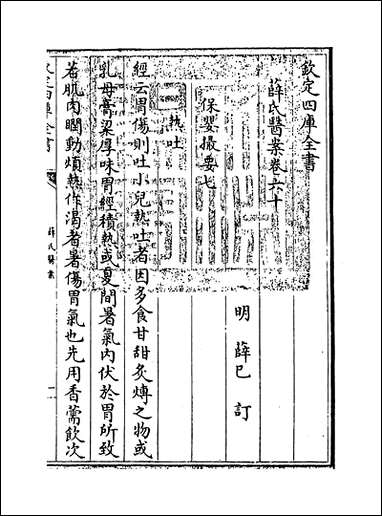 欽定四庫全書
薛氏醫案卷六十
明 薛已 訂
保嬰撮要七
熱吐
經云胃傷則吐小兒熱吐者因多食甘甜炙煿之物或
乳母膏粱厚味胃經積熱或夏間暑氣内伏於胃所致
若肌肉瞤動煩熱作渴者暑傷胃氣也先用香薷飲次
欽定四庫全書
薛氏醫案